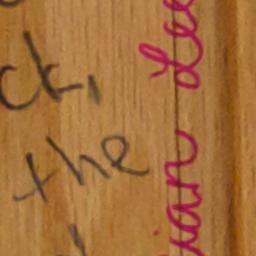 ck,
the
ian Lee